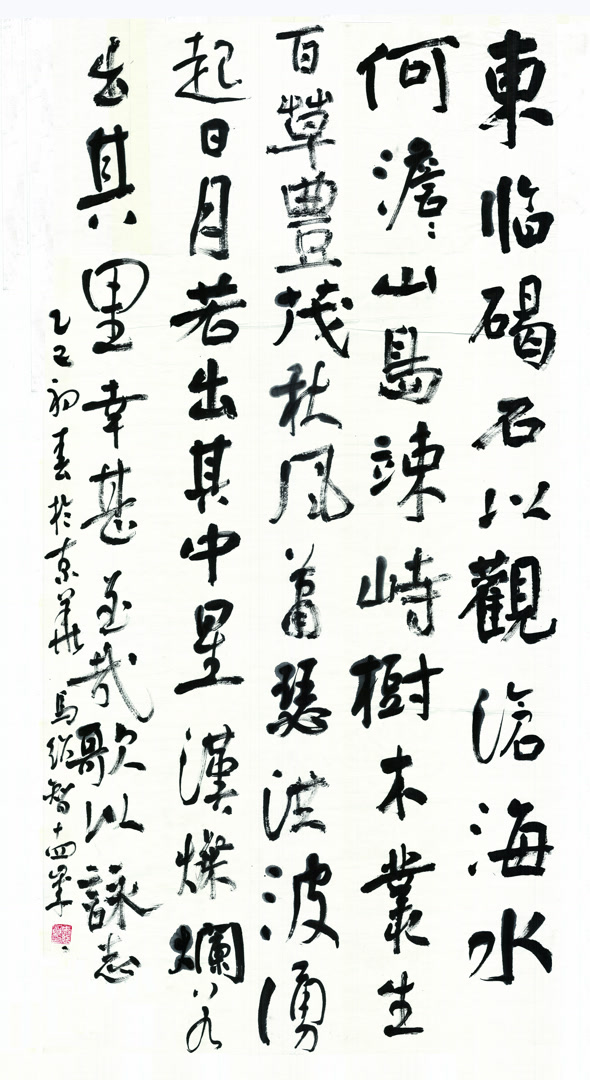 東临碣石以觀滄海水
何澹〻山島竦峙樹木叢生
百草豐茂秋風蕭瑟洪波湧
起日月若出其中星漢燦爛若
出其里幸甚至哉歌以詠志
乙巳初春於京華 馬继智